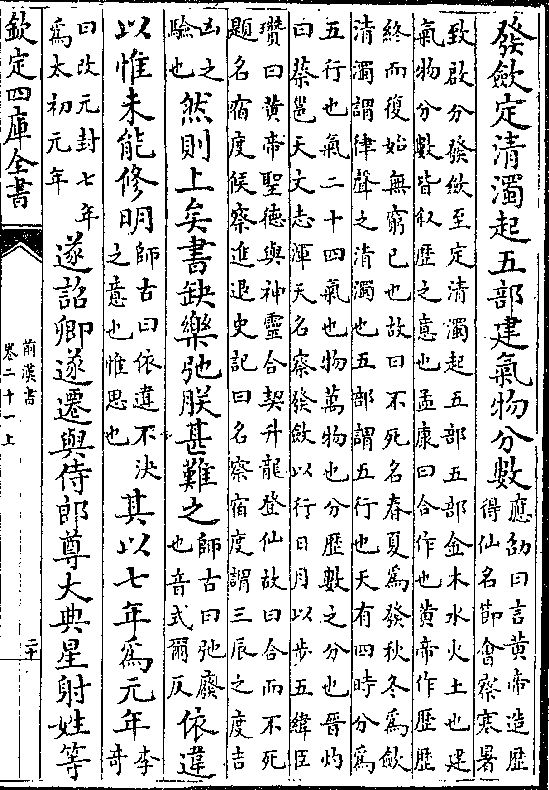 發斂定清濁起五部建氣物分數
應劭曰言黃帝造歷
得仙名節會察寒暑
致啟分發斂至定清濁起五部五部金木水火土也建
氣物分數皆叙歷之意也孟康曰合作也黃帝作歷歷
終而復始無窮已也故曰不死名春夏爲發秋冬爲斂
清濁謂律聲之清濁也五部謂五行也天有四時分爲
五行也氣二十四氣也物萬物也分歷數之分也晉灼
曰蔡邕天文志渾天名察發斂以行日月以步五緯臣
瓚曰黃帝聖德與神靈合契升龍登仙故曰合而不死
題名宿度候察進退史記曰名察宿度謂三辰之度吉
凶之
驗也
然則上矣書缺樂弛朕甚難之
師古曰弛廢
也音式爾反
依違
以惟未能修明
師古曰依違不決
之意也惟思也
其以七年爲元年
李
奇
曰改元封七年
爲太初元年
遂詔卿遂遷與侍郎尊大典星射姓等
欽定四庫全書
前漢書
卷二十一上
二十